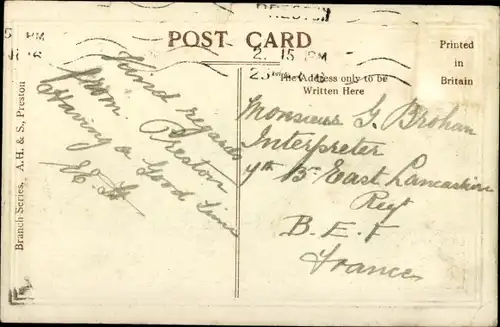 PRESTON
5 PM
2. 15 PM
POST CARD
Printed
in
Britain
The Address only to be
Written Here
Kind regards
from. Preston
Having a Good Time
Monsieur G. Brohan
Interpreter
7th B East Lancashire
Regt
B. E. F
France
Branch Series, A.H. & S., Preston